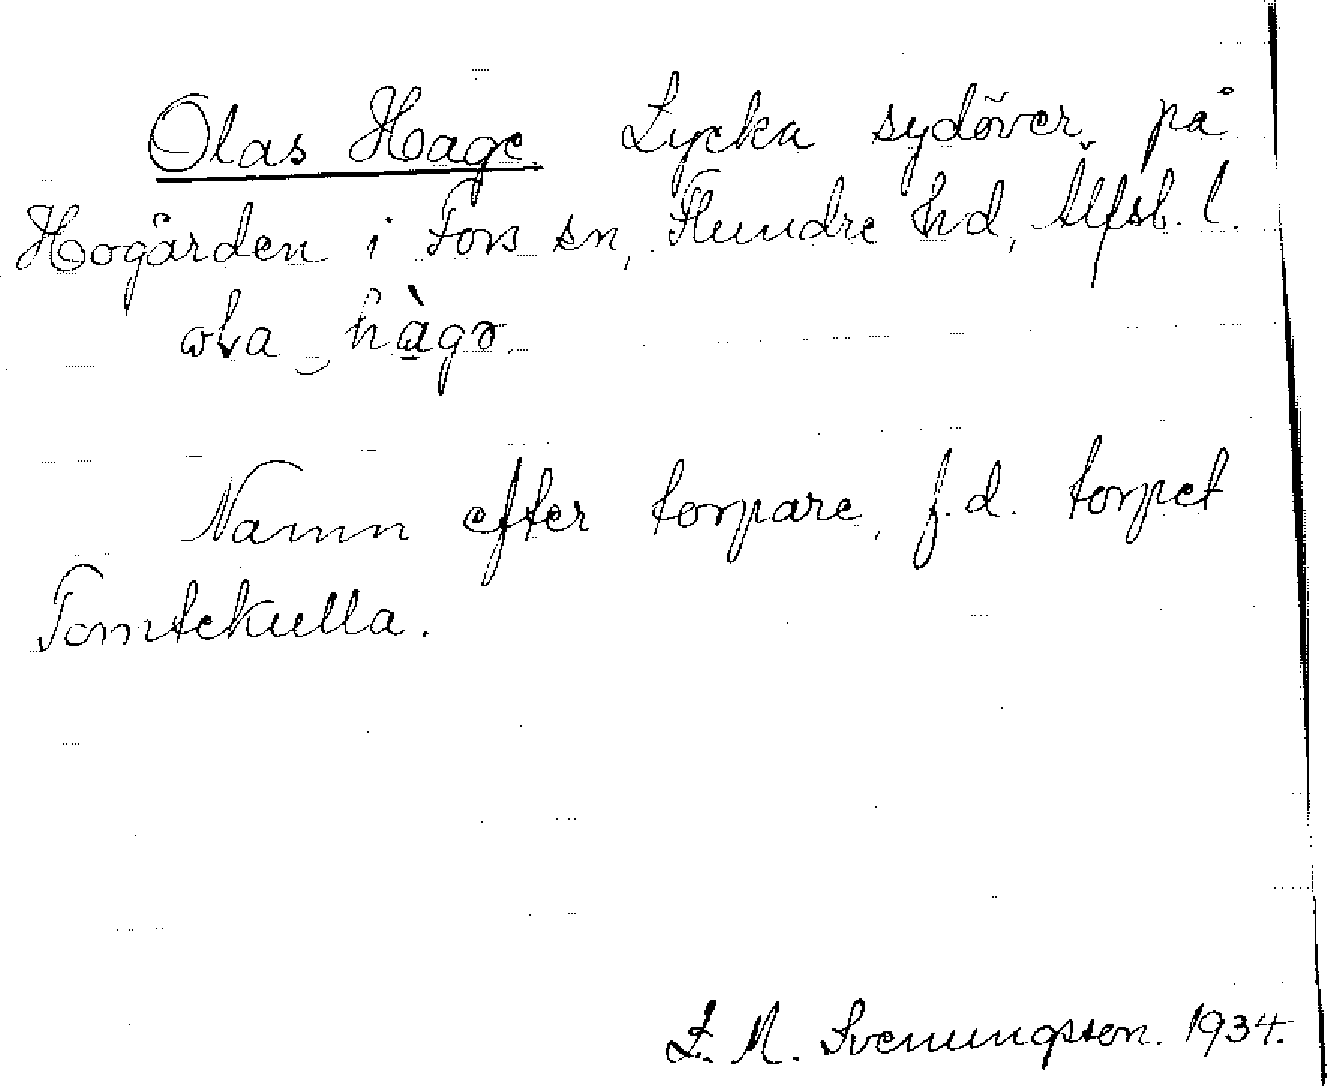 Olas Hage. Lycka sydöver på
Hogården i Fors sn, Flundre hd, Älfsb. l.
ɷla ‿ hàgə.
Namn efter torpare, f.d. torpet
Tomtekulla.
L. M. Svenungsson. 1934.